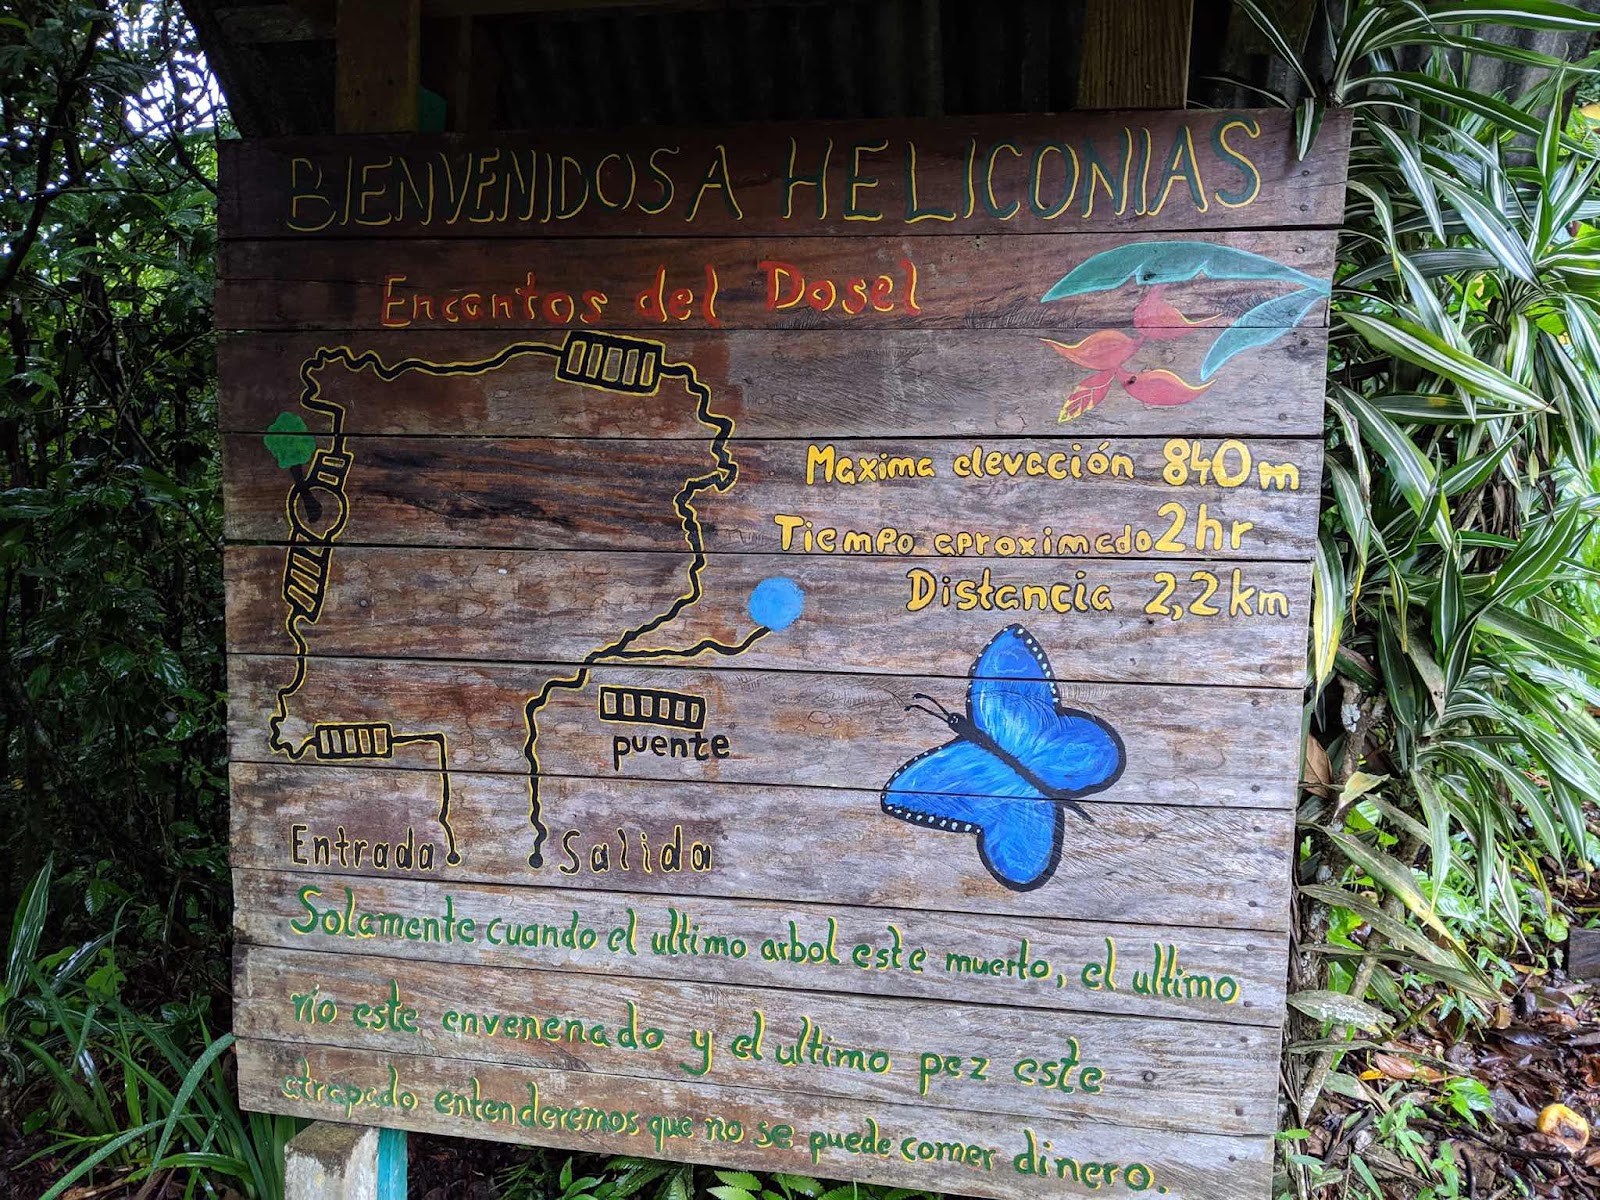 BIENVENIDOS A HELICONIAS
Encantos del Dosel
Maxima elevación 840m
Tiempo aproximado 2hr
Distancia 2,2 km
puente
Entrada
Salida
Solamente cuando el ultimo arbol este muerto, el ultimo
río este envenenado y el ultimo pez este
atrapado entenderemos que no se puede comer dinero.